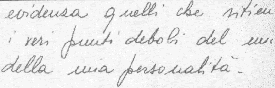 evidenza quelli che ritien
i veri punti deboli del
della mia personalità.